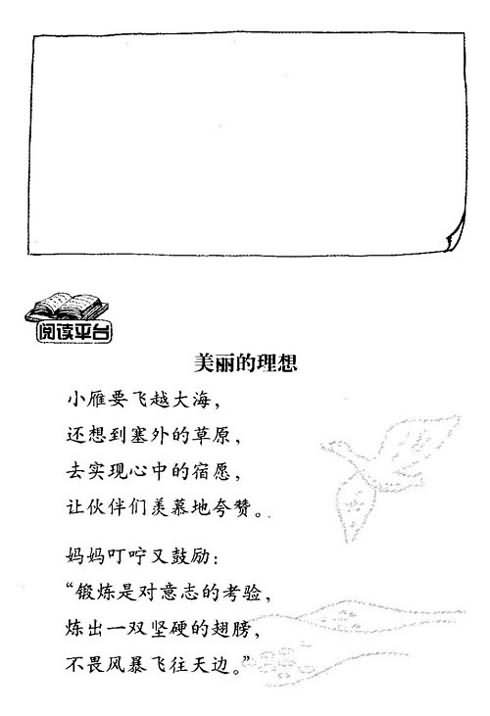 阅读平台
美丽的理想
小雁要飞越大海，
还想到塞外的草原，
去实现心中的宿愿，
让伙伴们羡慕地夸赞。
妈妈叮咛又鼓励：
“锻炼是对意志的考验，
炼出一双坚硬的翅膀，
不畏风暴飞往天边。”